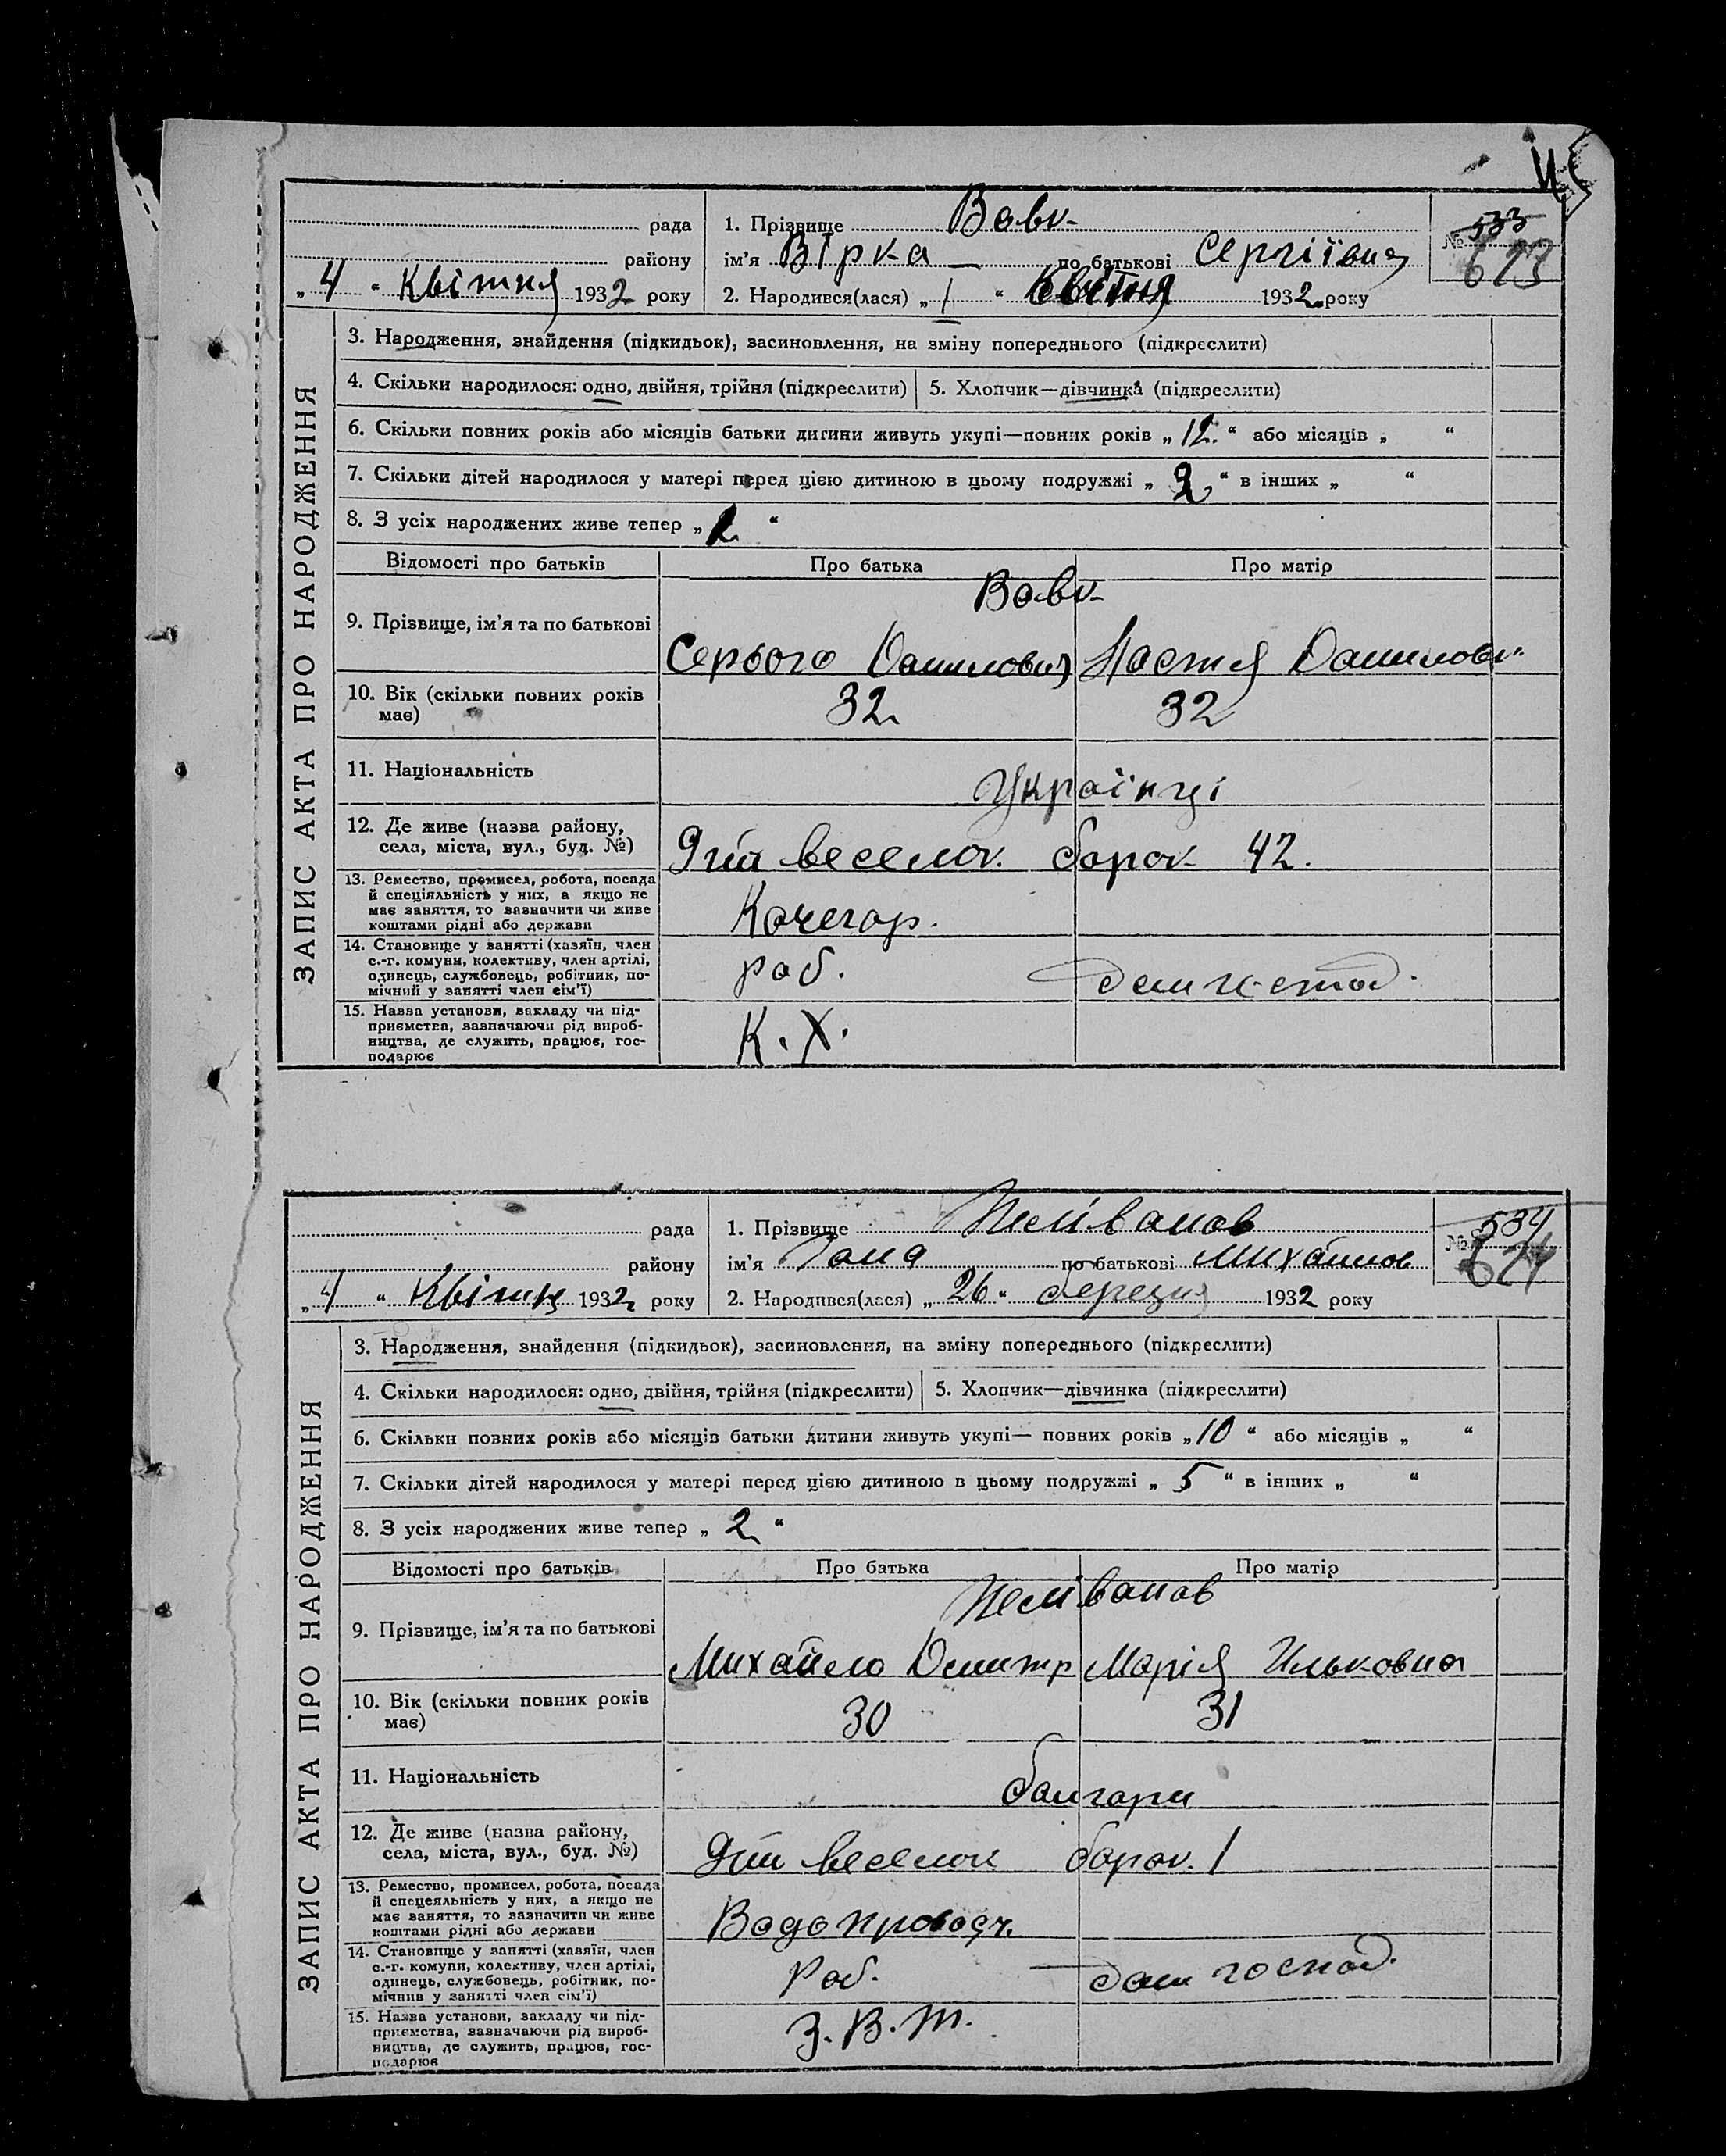 рада
району
„ 4 “ Квітня 1932 року
1. Прізвище Вовк
ім’я Вірка по батькові Сергіївна
2. Народився(лася) „ 1 “ Квітня 1932 року
№ 533
613
ЗАПИС АКТА ПРО НАРОДЖЕННЯ
3. Народження, знайдення (підкидьок), засиновлення, на зміну попереднього (підкреслити)
4. Скільки народилося: одно, двійня, трійня (підкреслити) 5. Хлопчик—дівчинка (підкреслити)
6. Скільки повних років або місяців батьки дитини живуть укупі—повних років „ 12 “ або місяців „ “
7. Скільки дітей народилося у матері перед цією дитиною в цьому подружжі „ 2 “ в інших „ “
8. З усіх народжених живе тепер „ 2 “
Відомості про батьків Про батька Про матір
Вовк
9. Прізвище, ім’я та по батькові
Настя
10. Вік (скільки повних років має) 32 32
11. Національність Українці
12. Де живе (назва району,
села, міста, вул., буд. №) веселок. барак 42.
13. Ремество, промисел, робота, посада
й спеціяльність у них, а якщо не
має заняття, то зазначити чи живе
коштами рідні або держави
Кочегар.
14. Становище у занятті (хазяїн, член
с.-г. комуни, колективу, член артілі,
одинець, службовець, робітник, по-
мічний у занятті член сім’ї)
роб.
15. Назва установи, закладу чи під-
приємства, зазначаючи рід вироб-
ництва, де служить, працює, гос-
подарює
К. Х.
рада
району
„ 4 “ Квітня 1932 року
1. Прізвище
ім’я по батькові Михайлов
2. Народився(лася) „ 26 “ березня 1932 року
№ 534
614
ЗАПИС АКТА ПРО НАРОДЖЕННЯ
3. Народження, знайдення (підкидьок), засиновлення, на зміну попереднього (підкреслити)
4. Скільки народилося: одно, двійня, трійня (підкреслити) 5. Хлопчик—дівчинка (підкреслити)
6. Скільки повних років або місяців батьки дитини живуть укупі— повних років „ 10 “ або місяців „ “
7. Скільки дітей народилося у матері перед цією дитиною в цьому подружжі „ 5 “ в інших „ “
8. З усіх народжених живе тепер „ 2 “
Відомості про батьків Про батька Про матір
9. Прізвище, ім’я та по батькові
Михайло Дмитр Марія Ильковна
10. Вік (скільки повних років має) 30 31
11. Національність болгари
12. Де живе (назва району,
села, міста, вул., буд. №) веселок барак. 1
13. Ремество, промисел, робота, посада
й спецеяльність у них, а якщо не
має заняття, то зазначити чи живе
коштами рідні або держави
Водопроводч.
14. Становище у занятті (хазяїн, член
с.-г. комуни, колективу, член артілі,
одинець, службовець, робітник, по-
мічния у занятті член сім’ї)
Роб. дом господ.
15. Назва установи, закладу чи під-
приємства, зазначаючи рід вироб-
ництва, де служить, працює, гос-
подарює
З. В. Т.